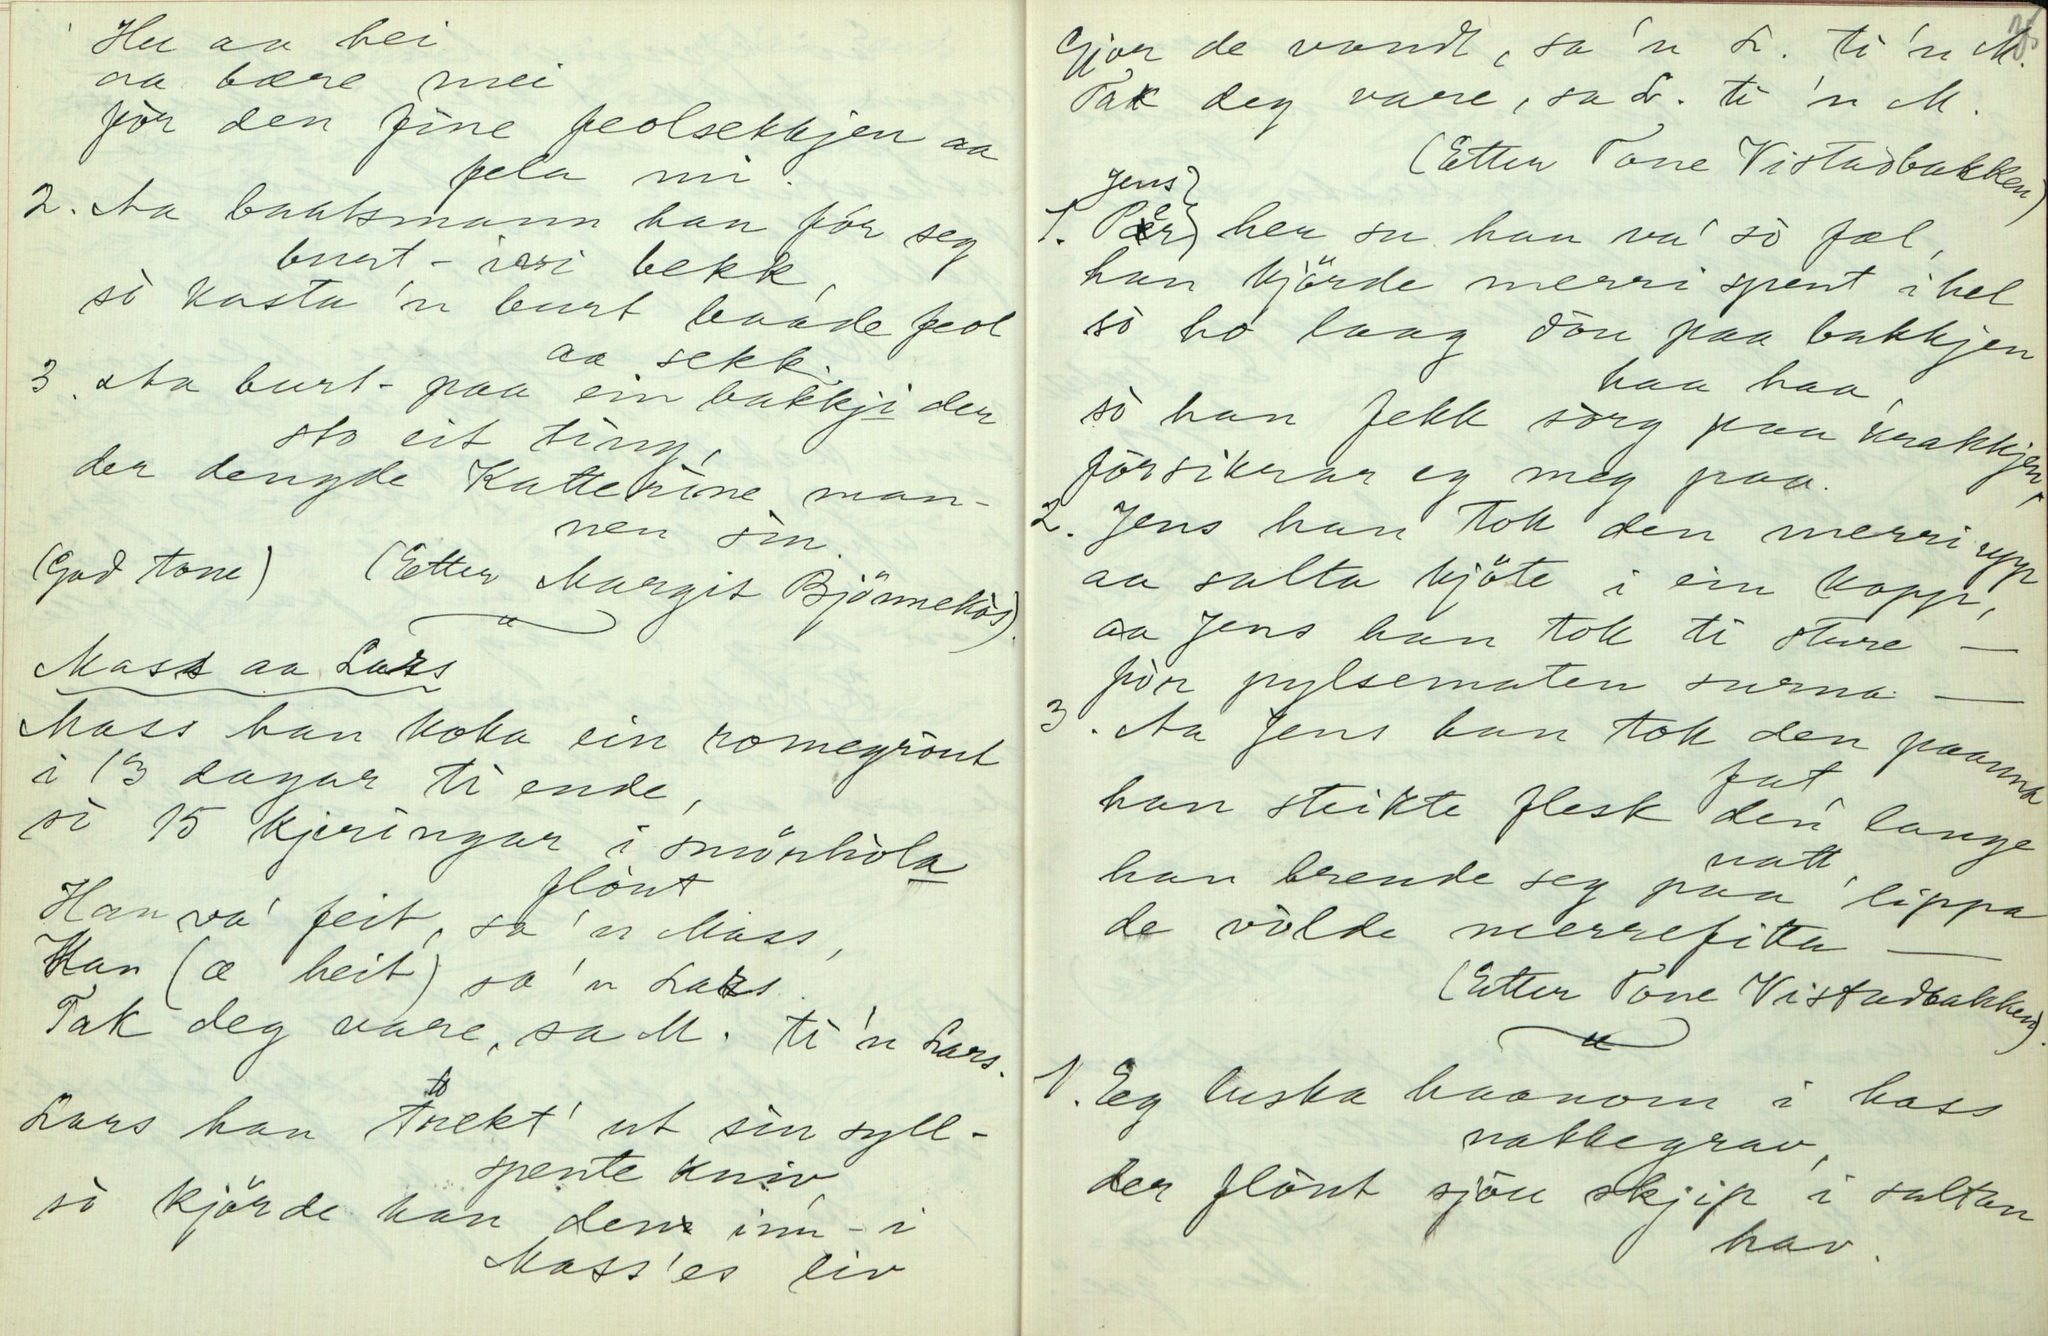 Hu aa hei
aa bære mei
fòr den fine feolsekkjen aa
fela mi.
2. Aa baatsmann han fór seg
burt - i ei bekk,
sò kasta 'n burt baade feol
aa sekk.
3. Aa burt - paa ein bakkji der
sto eit ting,
der dengde Katterine man-
nen sin.
(God tone) (Etter Margit Bjönnekòs).
Mass aa Lars
Mass han koka ein romegròut
i 13 dagar ti ende,
sò 15 kjeringar i smörhòla
flòut
Han va' feit, sa 'n Mass,
Han (æ heit) sa 'n Lars.
Tak deg vare, sa M. ti 'n Lars.
Lars han trekt' ut sin syll-
spente kniv
sò kjörde han den inn - i
Mass'es liv
Gjor de vondt, sa 'n L. ti 'n M.
Tak deg vare, sa L. ti 'n M.
(Etter Tone Vistadbakken)
Jens
1. Per her su han va' sò fæl,
han kjörde merri spent ihel
sò ho laag dòu paa bakkjen
haa haa,
sò han fekk sòrg paa krakkjen,
fòrsikrar eg meg paa.
2. Jens han tok den merri upp
aa salta kjöte i ein kopp,
aa Jens han tok ti sture —
fòr pylsematen surna —
3. Aa Jens han tok den paanna
fat,
han steikte flesk den lange
natt,
han brende seg paa lippa
de vòlde merrefitta —
(Etter Tone Vistadbakken).
1. Eg luska haanom i hass
nakkegrav,
der flòut sjöu skjip i saltan
hav.